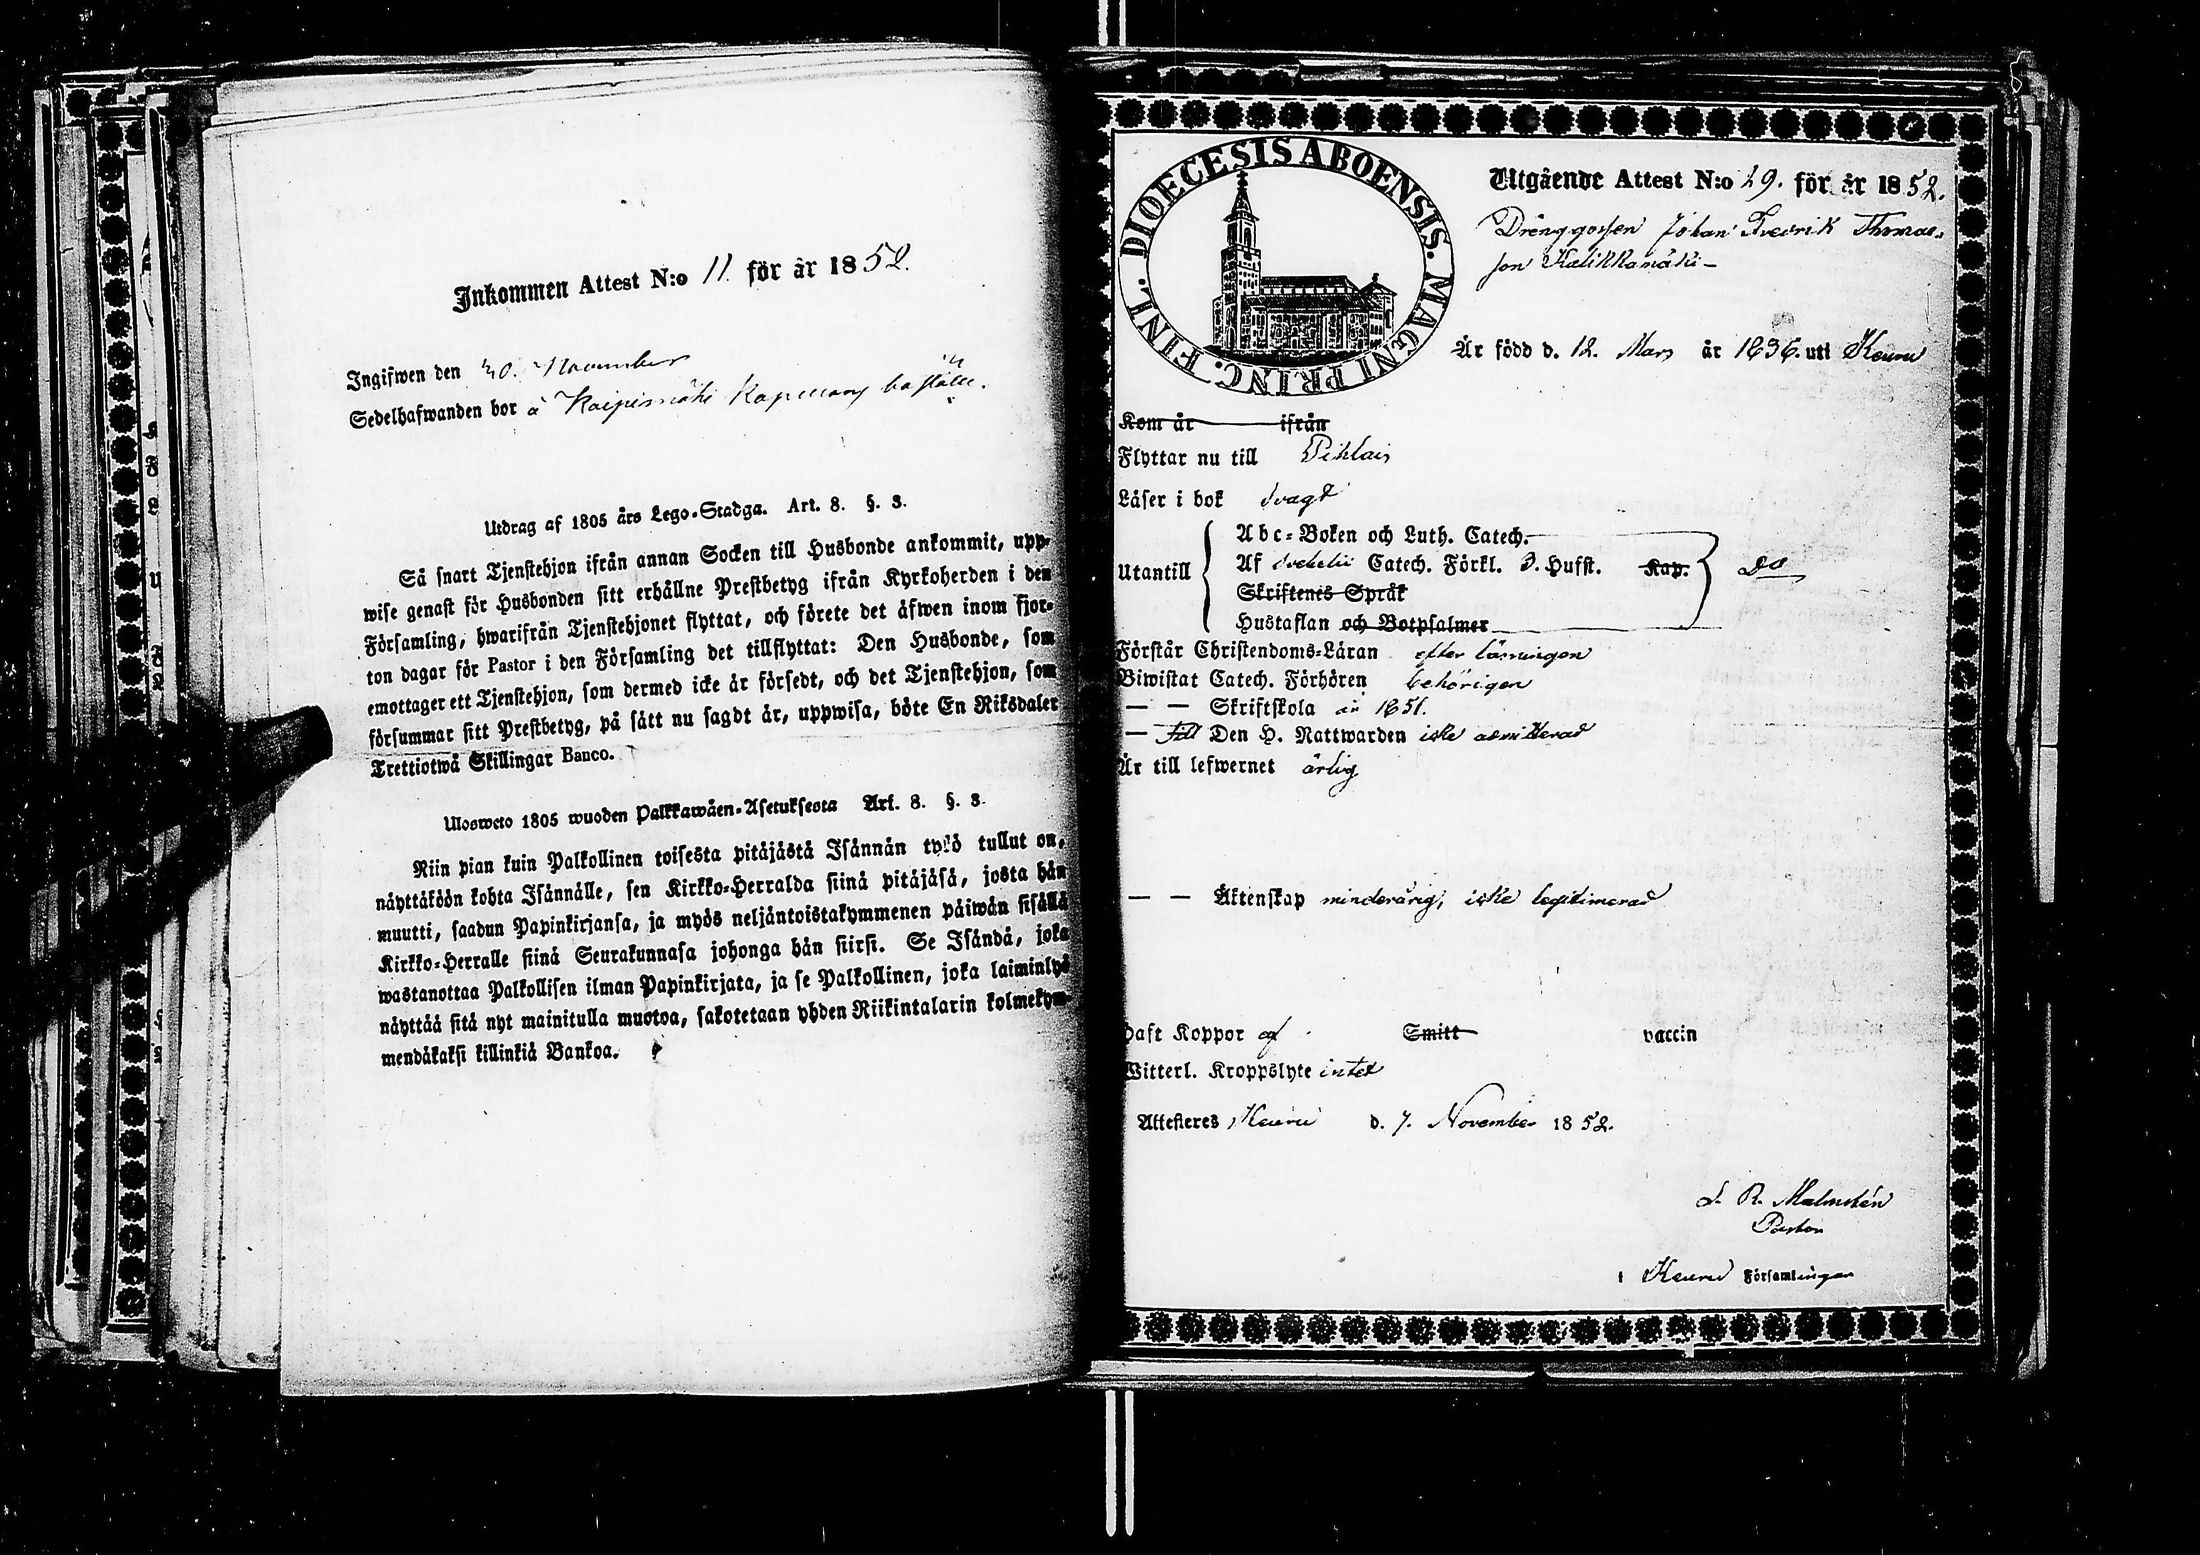 Inkommen Attest N:o 11. för år 1852.
Ingifwen den 30. November
Sedelhafwanden bor å Kaipismäki Kapellans boställe.
Utdrag af 1805 års Lego-Stadga. Art. 8. §. 3.
Så snart Tjenstehjon ifrån annan Socken till Husbonde ankommit, upp-
wise genast för Husbonden sitt erhållne Prestbetyg ifrån Kyrkoherden i den
Församling, hwarifrån Tjenstehjonet flyttat, och förete det äfwen inom fjor-
ton dagar för Pastor i den Församling det tillflyttat: Den Husbonde, som
emottager ett Tjenstehjon, som dermed icke är försedt, och det Tjenstehjon, som
försummar sitt Prestbetyg, på sätt nu sagdt är, uppwisa, böte En Riksdaler
Trettiotwå Skillingar Banco.
Ulosweto 1805 wuoden Palkkawäen-Asetuksesta Art. 8. §. 3.
Niin pian kuin Palkollinen toisesta pitäjästä Isännän tykö tullut on,
näyttäköön kohta Isännälle, sen Kirkko-Herralda siinä pitäjäsä, josta hän
muutti, saadun Papinkirjansa, ja myös neljäntoistakymmenen päiwän sisällä
Kirkko-Herralle siinä Seurakunnasa johonga hän siirsi. Se Isändä, joka
wastanottaa Palkollisen ilman Papinkirjata, ja se Palkollinen, joka laiminlyö
näyttää sitä nyt mainitulla muotoa, sakotetaan yhden Riikintalarin kolmekym-
mendäkaksi killinkiä Bankoa.
DIOECESIS ABOENSIS. MAGNI PRINC. FINL.
Utgående Attest N:o 29. för år 1852.
Drenggossen Johan Fredrik Thomas-
son Kalikkamäki
Är född d. 12. Mars år 1836. uti Keuru
Kom år ifrån
Flyttar nu till Pihlais
Läser i bok svagt
Abc-Boken och Luth. Catech.
Utantill Af Svebelii Catech. Förkl. 3. Hufst. Kap. Do
Skriftenes Språk
Hustaflan och Botpsalmer
Förstår Christendoms-Läran efter läsningen
Biwistat Catech. Förhören behörigen
— — Skriftskola år 1851.
— Till Den H. Nattwarden icke admitterad
Är till lefwernet ärlig
— — Äktenskap minderårig, icke legitimerad
Haft Koppor af Smitt vaccin
Witterl. Kroppslyte intet
Attesteres Keuru d. 7. November 1852.
L. R. Malmstén
Pastor
i Keuru Församlingar